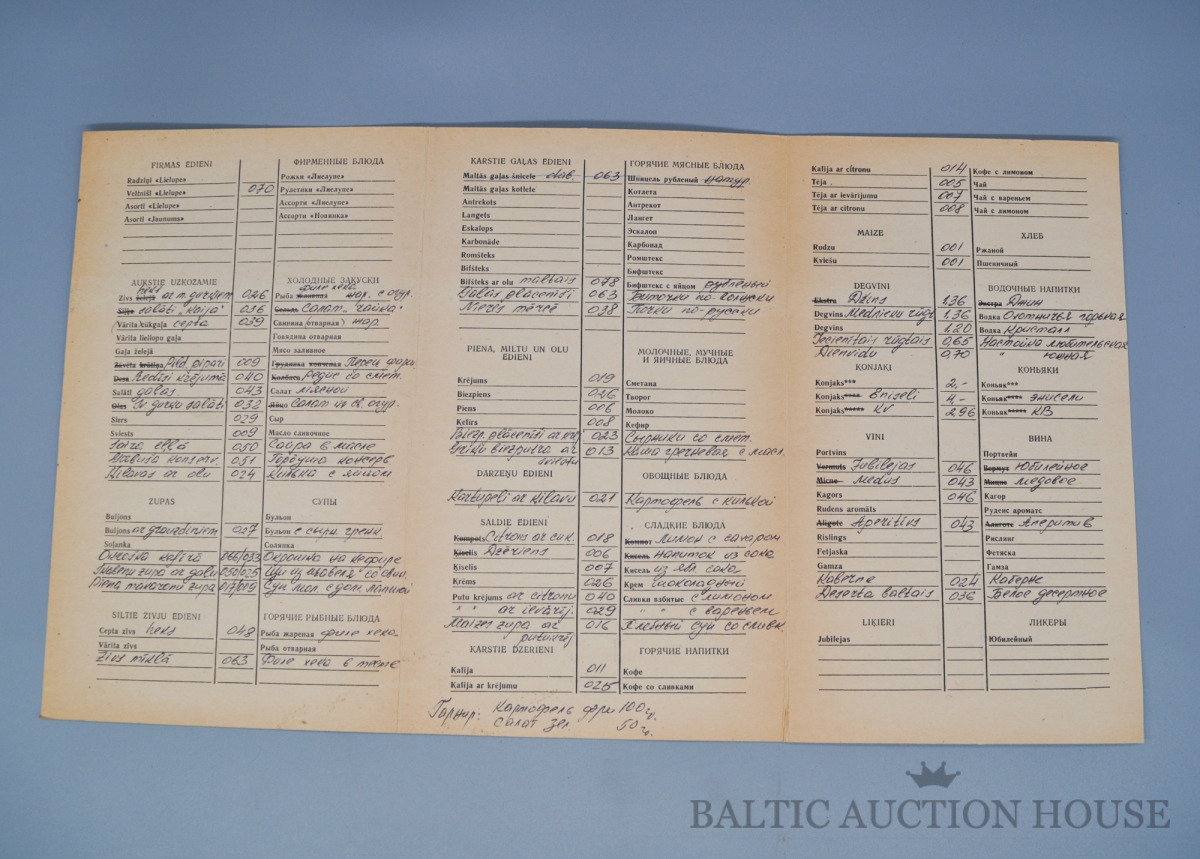 FIRMAS ĒDIENI ФИРМЕННЫЕ БЛЮДА
Radziņi «Lielupe» Рожки «Лиелупе»
Veltnīši «Lielupe» 070 Рулетики «Лиелупе»
Asorti «Lielupe» Ассорти «Лиелупе»
Asorti «Jaunums» Ассорти «Новинка»
AUKSTIE UZKOŽAMIE ХОЛОДНЫЕ ЗАКУСКИ
heks филе хека
Zivs želejā ar m. gurķiem 026 Рыба жар. с огур.
Siļķe salāti "Kaija" 036 Сельдь Салат "Чайка"
Vārīta cūkgaļa cepta 039 Свинина (отварная) жар.
Vārīta liellopu gaļa Говядина отварная
Gaļa želejā Мясо заливное
Žāvēta krūtiņa Pild. pipari 009 Грудинка копченая Перец фарш.
Desa Redīsi krējumā 040 Колбаса Редис со смет.
Salāti gaļas 043 Салат мясной
Olas Sv. gurķu salāti 032 Яйцо Салат из св. огур.
Siers 029 Сыр
Sviests 009 Масло сливочное
Saira eļļā 050 Сайра в масле
Garbuša konserv. 051 Горбуша консерв.
Ķilavas ar olu 024 Килька с яйцом
ZUPAS СУПЫ
Buljons Бульон
Buljons ar grauzdiņiem 037 Бульон с сырн. грен.
Soļanka Солянка
Okroška kefīrā 066/033 Окрошка на кефире
Skābeņu zupa ar gaļu 050/025 Щи из щавеля со свин.
Piena makaronu zupa 017/009 Суп мол. с дом. лапшой
SILTIE ZIVJU ĒDIENI ГОРЯЧИЕ РЫБНЫЕ БЛЮДА
Cepta zivs heks 048 Рыба жареная филе хека
Vārīta zivs Рыба отварная
Zivs mīklā 063 Филе хека в тесте
KARSTIE GAĻAS ĒDIENI ГОРЯЧИЕ МЯСНЫЕ БЛЮДА
Maltās gaļas šnicele dab. 063 Шницель рубленый натур.
Maltās gaļas kotlete Котлета
Antrekots Антрекот
Langets Лангет
Eskalops Эскалоп
Karbonāde Карбонад
Romšteks Ромштекс
Bifšteks Бифштекс
Bifšteks ar olu maltais 078 Бифштекс с яйцом рубленый
Gaļas plācenīši 063 Биточки по-
Nieres mērcē 038 Почки по-русски
PIENA, MILTU UN OLU ĒDIENI МОЛОЧНЫЕ, МУЧНЫЕ И ЯИЧНЫЕ БЛЮДА
Krējums 019 Сметана
Biezpiens 026 Творог
Piens 006 Молоко
Kefīrs 008 Кефир
Biezp. plācenīši ar krēj. 023 Сырники со смет.
Griķu biezputra ar sviestu 013 Каша гречневая с масл.
DĀRZEŅU ĒDIENI ОВОЩНЫЕ БЛЮДА
Kartupeļi ar ķilavu 021 Картофель с килькой
SALDIE ĒDIENI СЛАДКИЕ БЛЮДА
Kompots Citrons ar cuk. 018 Компот Лимон с сахаром
Ķīselis Dzēriens 006 Кисель напиток из сока
Ķīselis 007 Кисель из ябл. сока
Krēms 026 Крем шоколадный
Putu krējums ar citronu 040 Сливки взбитые с лимоном
" " ar ievārīj. 029 " " с вареньем
Maizes zupa ar putukrēj. 016 Хлебный суп со сливк.
KARSTIE DZĒRIENI ГОРЯЧИЕ НАПИТКИ
Kafija 011 Кофе
Kafija ar krējumu 025 Кофе со сливками
Гарнир: Картофель фри 100 гр.
Салат зел. 50 гр.
Kafija ar citronu 014 Кофе с лимоном
Tēja 005 Чай
Tēja ar ievārījumu 007 Чай с вареньем
Tēja ar citronu 008 Чай с лимоном
MAIZE ХЛЕБ
Rudzu 001 Ржаной
Kviešu 001 Пшеничный
DEGVĪNI ВОДОЧНЫЕ НАПИТКИ
Ekstra Džins 1,36 Экстра Джин
Degvīns Mednieku rūgt. 1,36 Водка Охотничья горькая
Degvīns 1,20 Водка Кристалл
Iecienītais rūgtais 0,65 Настойка любительская
Dienvidu 0,70 " южная
KONJAKI КОНЬЯКИ
Konjaks*** 2,- Коньяк***
Konjaks**** Eniseli 4,- Коньяк**** Энисели
Konjaks***** KV 2,96 Коньяк***** КВ
VĪNI ВИНА
Portvīns Портвейн
Vermuts Jubilejas 046 Вермут Юбилейное
Micne Medus 043 Мицне медовое
Kagors 046 Кагор
Rudens aromāts Руденс ароматс
Aligote Aperitīvs 043 Алиготе Аперитив
Rīslings Рислинг
Fetjaska Фетяска
Gamza Гамза
Kaberne 024 Каберне
Deserta baltais 036 Белое десертное
LIĶIERI ЛИКЕРЫ
Jubilejas Юбилейный
BALTIC AUCTION HOUSE